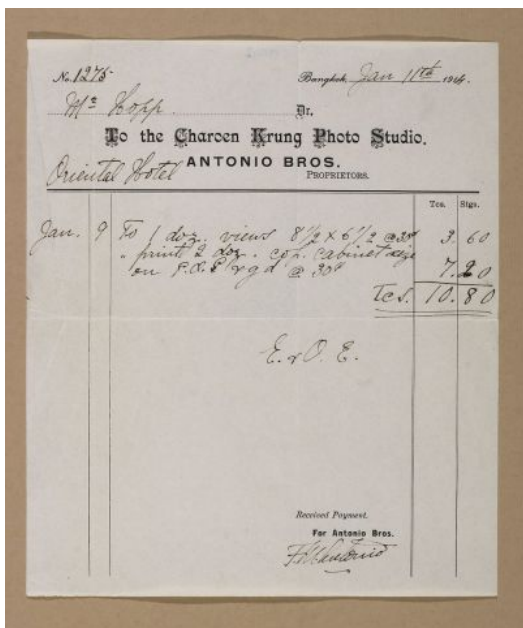 No. 1275
Bangkok, Jan 11th 1914.
Mr Hopp. Dr.
To the Charoen Krung Photo Studio.
Oriental Hotel ANTONIO BROS.
PROPRIETORS.
Tcs. Stgs.
Jan. 9 To 1 doz. views 8 1/2 x 6 1/2 @ 30 3. 60
" print 2 doz. cop. cabinet size
on P.O.P @ 30 7. 20
Tcs. 10. 80
E. & O. E.
Received Payment.
For Antonio Bros.